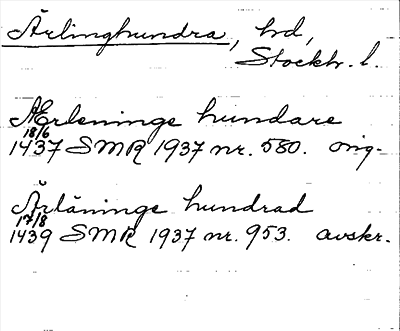 Ärlinghundra, hd,
Stockh. l.
Ærlenings hundare
18/6
1437 SMR 1937 nr. 580. orig.
Ärlänings hundrad
17/8
1439 SMR 1937 nr. 953. avskr.